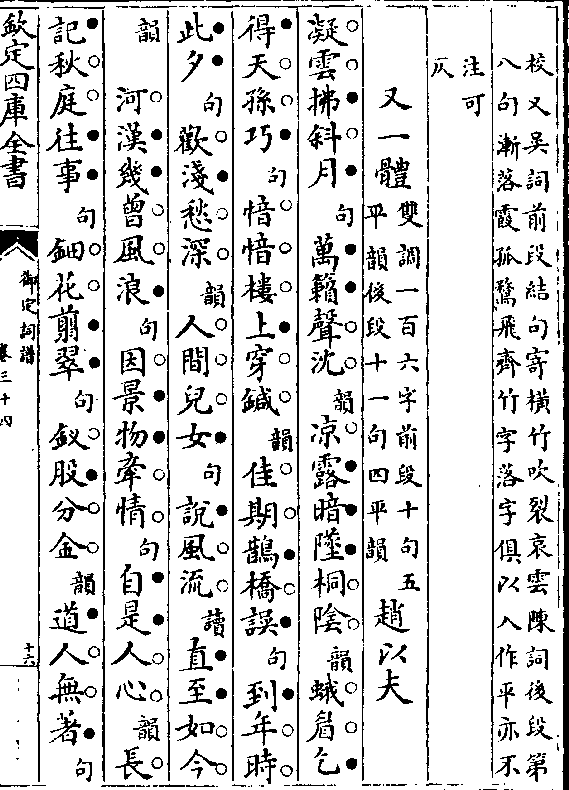 校又吴詞前段結句寄橫竹吹裂哀雲陳詞後段第
八句漸落霞孤鶩飛齊竹字落字俱以入作平亦不
注可
仄
又一體雙調一百六字前段十句五
平韻後段十一句四平韻趙以夫
凝雲拂斜月句萬籟聲沈韻凉露暗墜桐陰韻蛾眉乞
得天孫巧句愔愔樓上穿鍼韻佳期鵲橋誤句到年時
此夕句歡淺愁深韻人間兒女句說風流讀直至如今
韻河漢幾曾風浪句因景物牽情句自是人心韻長
記秋庭往事句鈿花翦翠句釵股分金韻道人無著句
欽定四庫全書
御定詞譜
卷三十四
十六